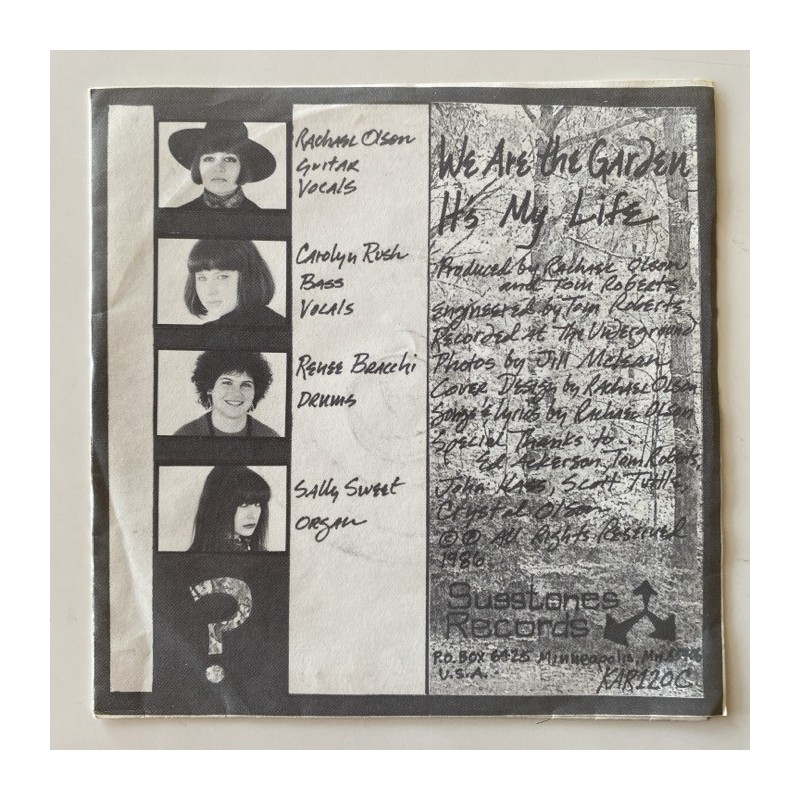 Rachael Olson
Guitar
Vocals
Carolyn Rush
Bass
Vocals
Renee Bracchi
Drums
Sally Sweet
Organ
?
We Are the Garden
It's My Life
Produced by Rachael Olson
and Tom Roberts
Engineered by Tom Roberts
Recorded at The Underground
Photos by Jill McLean
Cover Design by Rachael Olson
Songs & Lyrics by Rachael Olson
Special Thanks to...
Ed Ackerson, Tom Roberts,
John Kass, Scott Tuttle,
Crystal Olson
©℗ All Rights Reserved
1986
Susstones
Records
P.O. Box 6425 Minneapolis, MN
U.S.A.
KAR120C